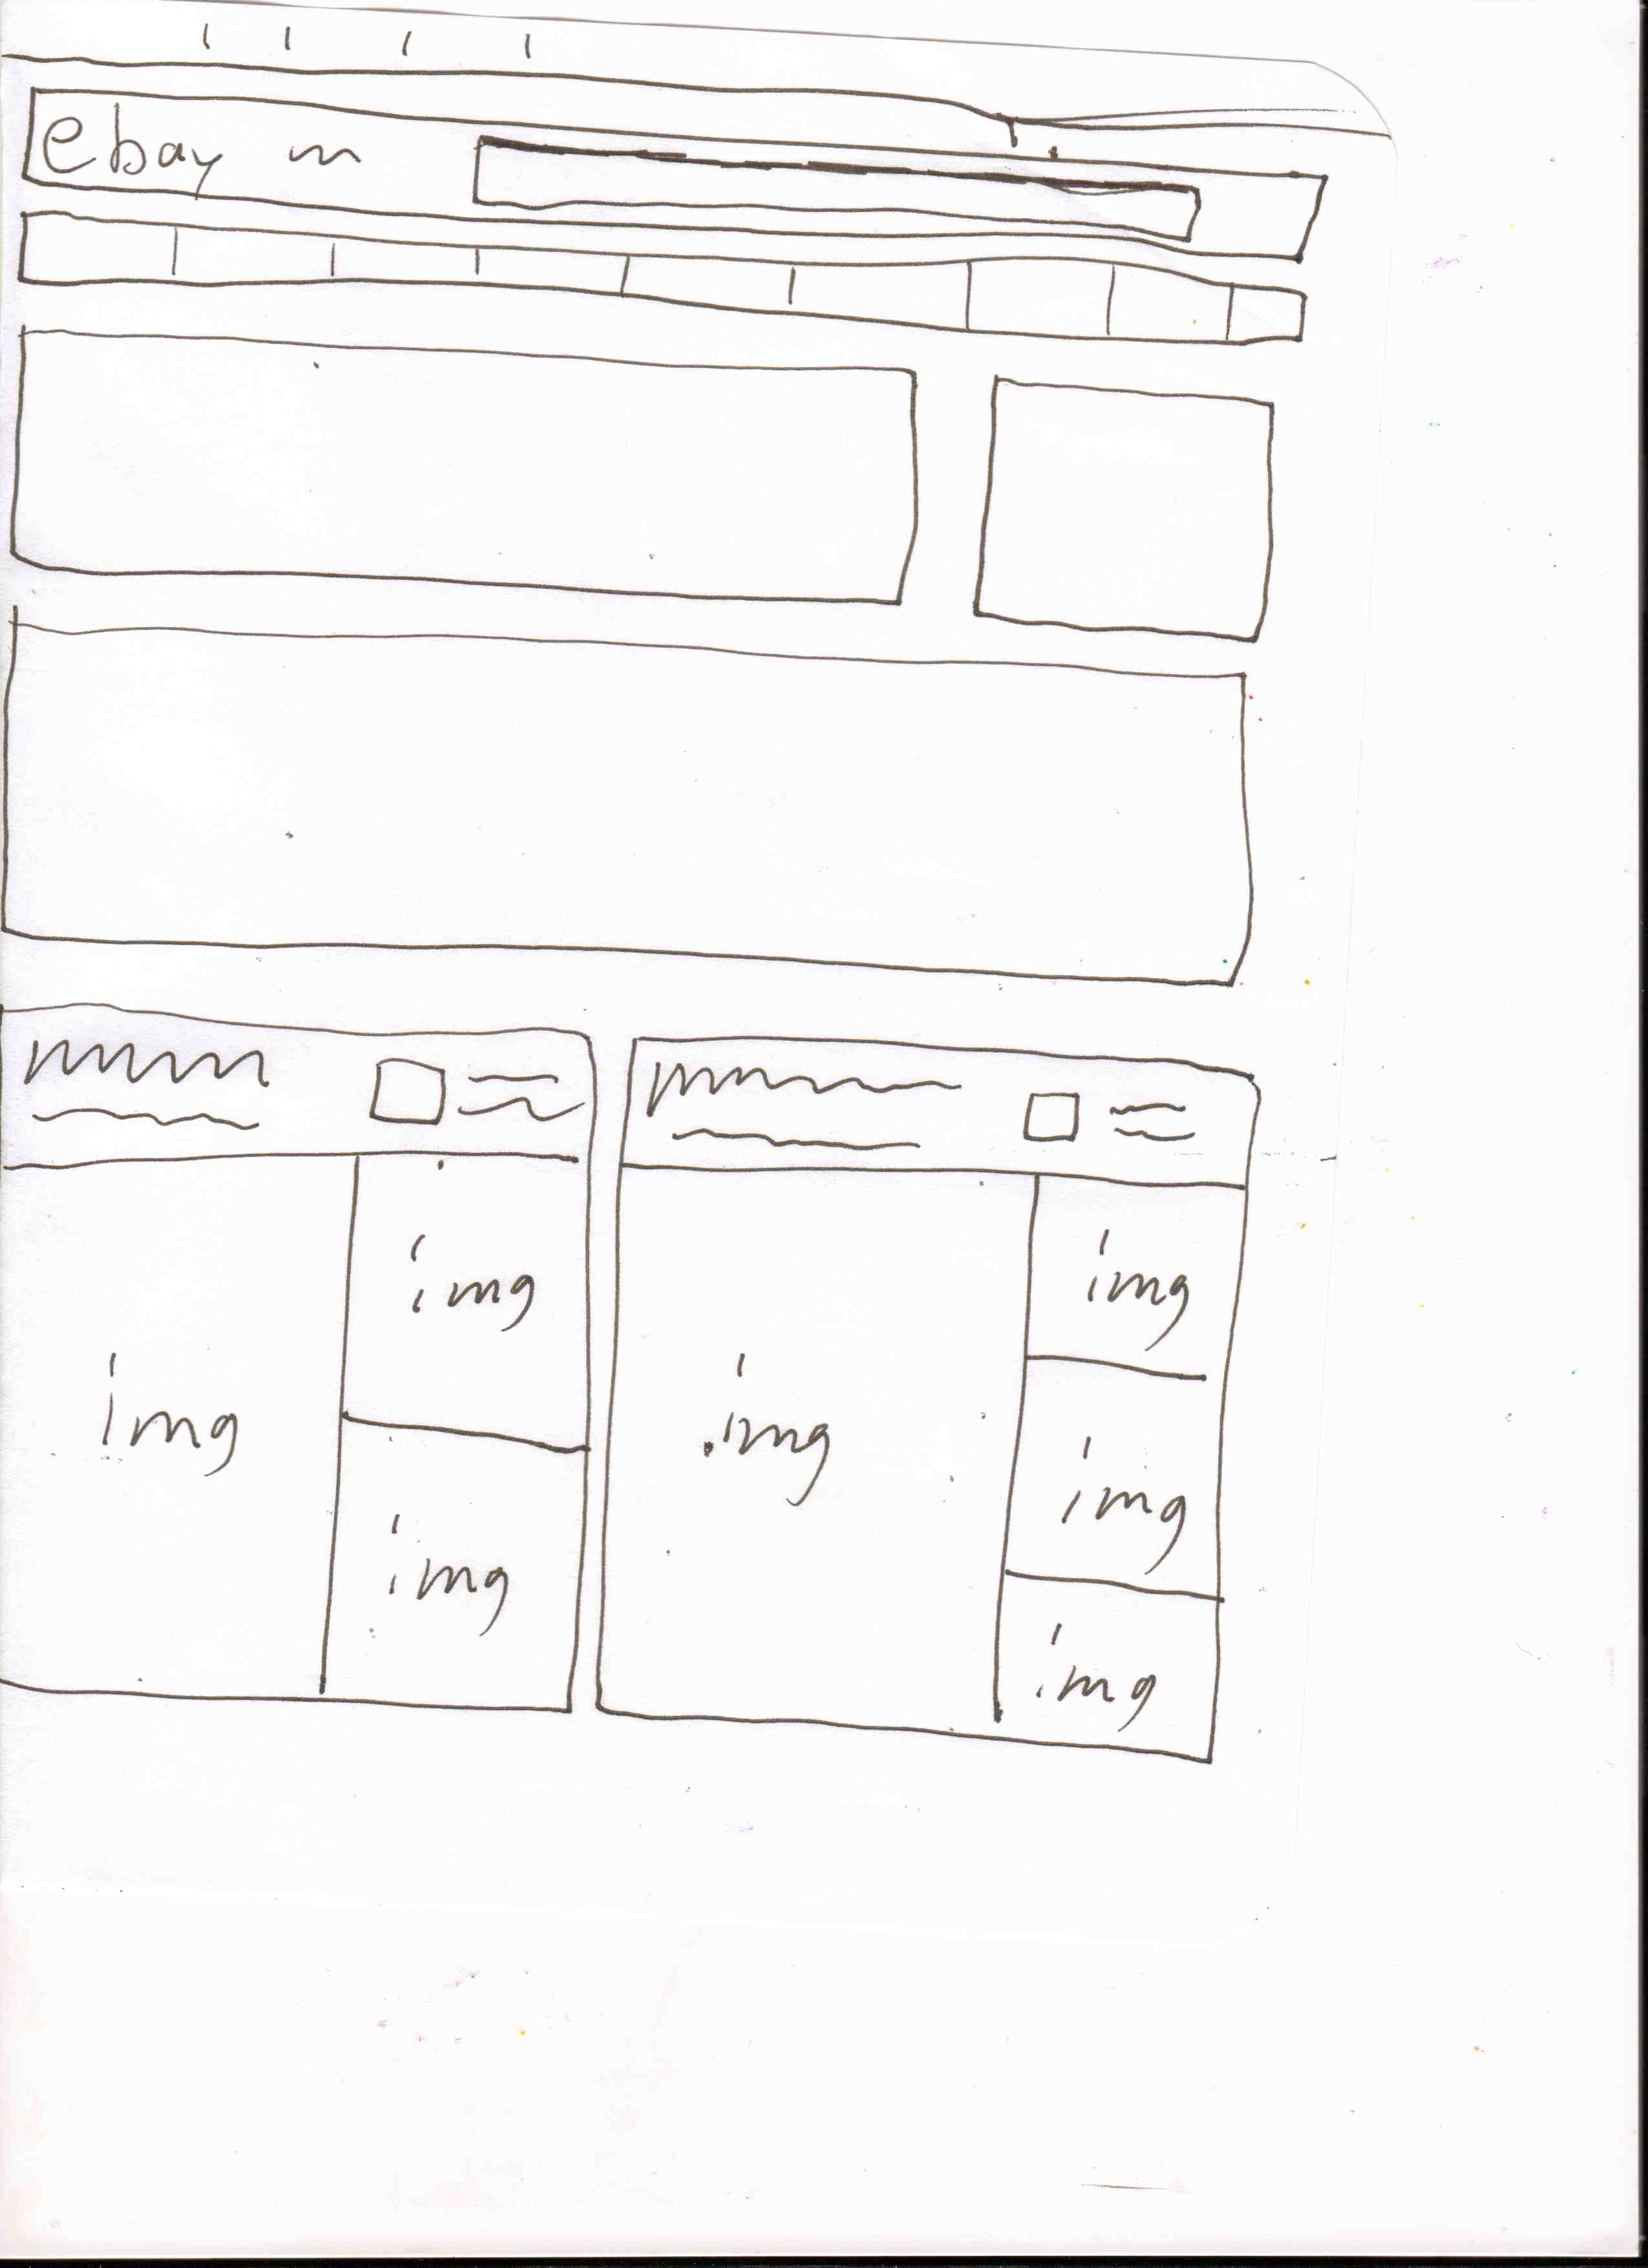 ebay
img
img
img
img
img
img
img